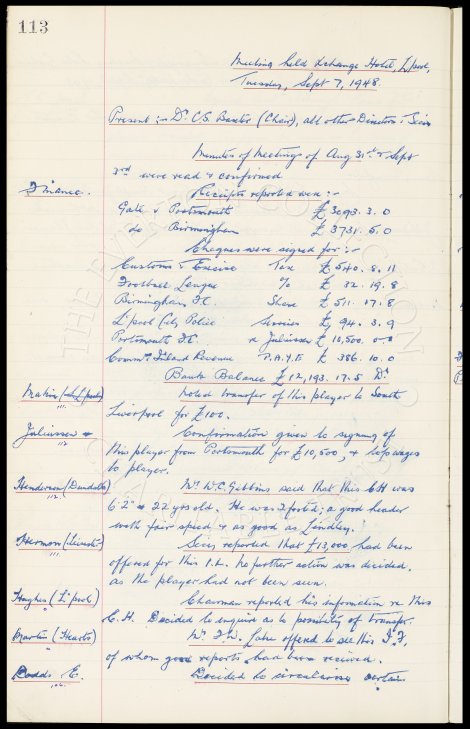 113
Meeting held Exchange Hotel, L'pool,
Tuesday, Sept 7, 1948.
Present :- Dr. C.S. Baxter (Chair), all other Directors & Secy
Minutes of Meetings of Aug 31st & Sept
3rd were read & confirmed
Finance. Receipts reported were :-
Gate v Portsmouth £3093. 3. 0
do Birmingham £3731. 5. 0
Cheques were signed for :-
Customs & Excise Tax £540. 8. 11
Football League % £ 32. 19. 8
Birmingham F.C. Share £511. 17. 8
L'pool City Police Services £ 94. 3. 9
Portsmouth F.C. re Juliussen £10,500. 0-0
Commrs Inland Revenue P.A.Y.E £ 386. 10. 0
Bank Balance £12,193. 17. 5 Dr
Makin (sth L'pool) Noted transfer of this player to South
Liverpool for £100.
Juliussen Confirmation given to signing of
this player from Portsmouth for £10,500, &
to player.
Henderson (Dundalk) Mr W.C. Gibbins said that this CH was
6'2" & 22 yrs old. He was 2 footed; a good header
with fair speed & as good as Lindley.
Secy reported that £13,000 had been
offered for this I.L. No further action was decided,
as the player had not been seen.
Hughes (L'pool) Chairman reported his information re this
C.H. Decided to enquire as to possibility of transfer.
Martin (Hearts) Mr offered to see this
of whom good reports had been received.
Dodds E. Decided to circularise certain